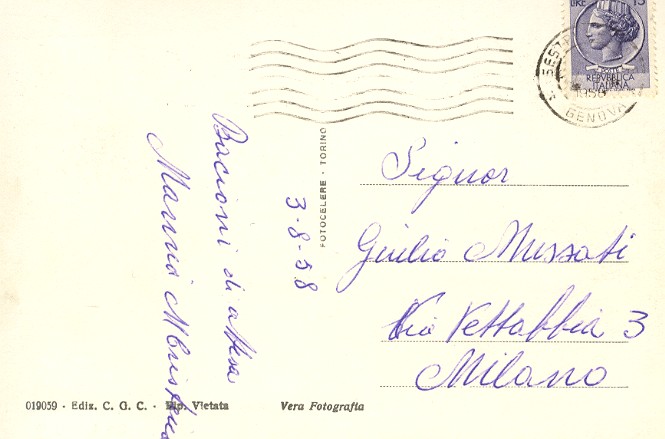 LIRE 15
POSTE
REPVBBLICA
ITALIANA
GENOVA
FOTOCELERE - TORINO
3-8-58
Bacioni di attesa
Signor
Giulio Mussati
Via Vettabbia 3
Milano
019059 - Ediz. C. G. C. - Rip. Vietata
Vera Fotografia